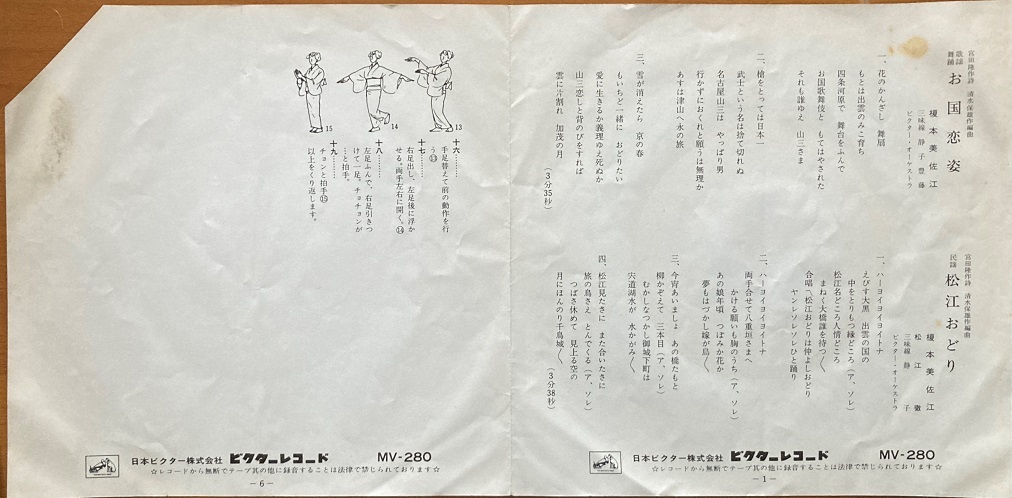 宮田隆作詩 清水保雄作編曲
歌謡舞踊 お国恋姿
榎本美佐江
三味線 静子 豊藤
ビクター・オーケストラ
一、花のかんざし 舞扇
もとは出雲のみこ育ち
四条河原で 舞台をふんで
お国歌舞伎と もてはやされた
それも誰ゆえ 山三さま
二、槍をとっては日本一
武士という名は捨て切れぬ
名古屋山三は やっぱり男
行かずにおくれと願うは無理か
あすは津山へ水の旅
三、雪が消えたら 京の春
もいちど一緒に おどりたい
愛に生きるか義理ゆえ死ぬか
山三恋しと背のびをすれば
雲に片割れ 加茂の月
(3分35秒)
宮田隆作詩 清水保雄作編曲
民謡 松江おどり
榎本美佐江
松江徹
三味線 静子
ビクター・オーケストラ
一、ハーヨイヨイヨイトナ
えびす大黒 出雲の国の
中をとりもつ縁どころ(ア、ソレ)
松江名どころ人情どころ
まねく大橋誰を待つ〱
合唱〽松江おどりは仲よしおどり
ヤンレソレソレひと踊り
二、ハーヨイヨイヨイトナ
両手合せて八重垣さまへ
かける願いも胸のうち(ア、ソレ)
あの娘年頃 つぼみか花か
夢もはづかし嫁が島〱
三、今宵あいましょ あの橋たもと
柳かぞえて 三本目(ア、ソレ)
むかしなつかし御城下町は
宍道湖水が 水かがみ〱
四、松江見たさに また合いたさに
旅の鳥さえ とんでくる(ア、ソレ)
つばさ休めて 見上る空の
月にほんのり千鳥城〱
(3分38秒)
日本ビクター株式会社 ビクターレコード MV-280
☆レコードから無断でテープ其の他に録音することは法律で禁じられております☆
-1-
13
14
15
十六……
手足替えて前の動作を行う⑬
十七……
右足出し、左足後に浮かせる。両手左右に開く。⑭
十八……
左足ふんで、右足引きつけて一足。チョチョンが…と拍手。
十九……
チョンと拍手⑮
以上をくり返します。
日本ビクター株式会社 ビクターレコード MV-280
☆レコードから無断でテープ其の他に録音することは法律で禁じられております☆
-6-